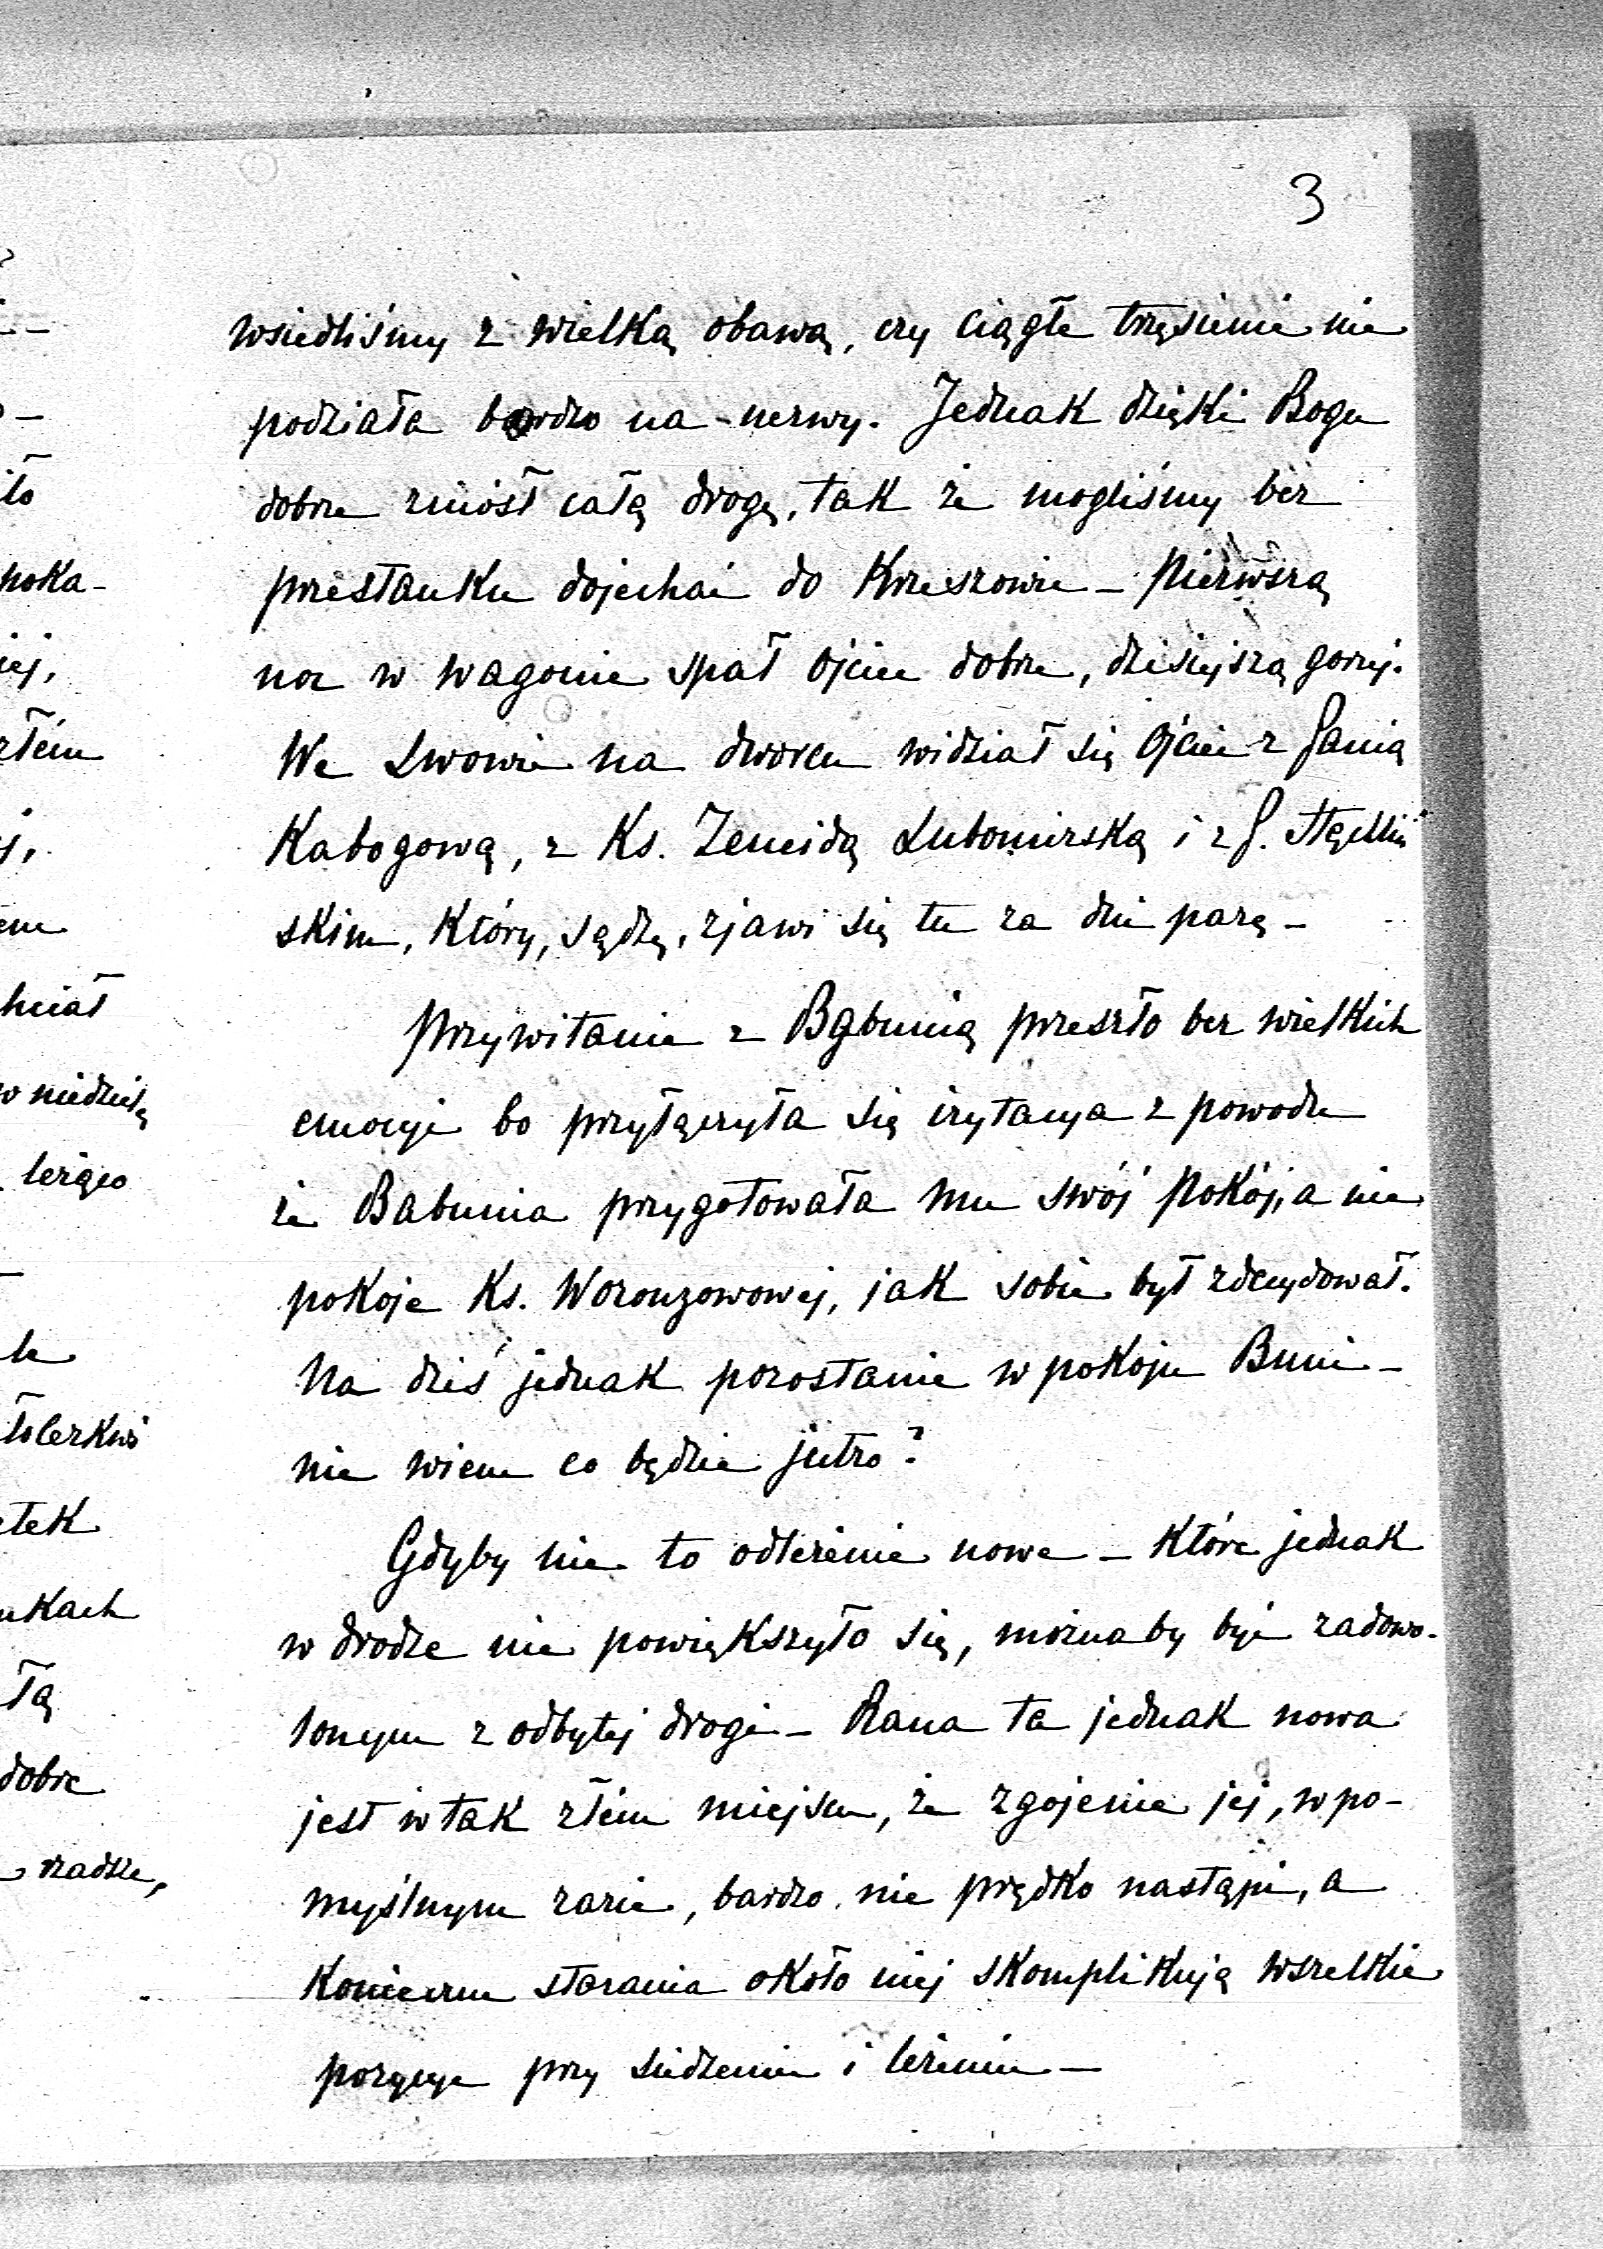 3
wsiedliśmy z wielką obawą, czy ciągłe trzęsienie nie
podziała bardzo na nerwy. Jednak dzięki Bogu
dobrze zniósł całą drogę, tak że mogliśmy bez
przestanku dojechać do Krzeszowic – Pierwszą
noc w wagonie spał Ojciec dobrze, dzisiejszą gorzej.
We Lwowie na dworcu widział się Ojciec z Panią
Kabogową, z Ks. Zeneidą Lubomirską i z P.
skim, który, sądzę, zjawi się tu za dni parę –
Przywitanie z Babunią przeszło bez wielkich
emocyi bo przyłączyła się irytacya z powodu
że Babunia przygotowała mu swój pokój, a nie
pokoje Ks. Woronzowowej, jak sobie był zdecydował.
Na dziś jednak pozostanie w pokoju Buni –
nie wiem co będzie jutro?
Gdyby nie to odleżenie nowe – które jednak
w drodze nie powiększyło się, możnaby być zadowo-
lonym z odbytej drogi – Rana ta jednak nowa
jest w tak złém miejscu, że zgojenie jej, w po-
myślnym razie, bardzo nie prędko nastąpi, a
konieczne starania około niej skomplikują wszelkie
pozycye przy siedzeniu i leżeniu –